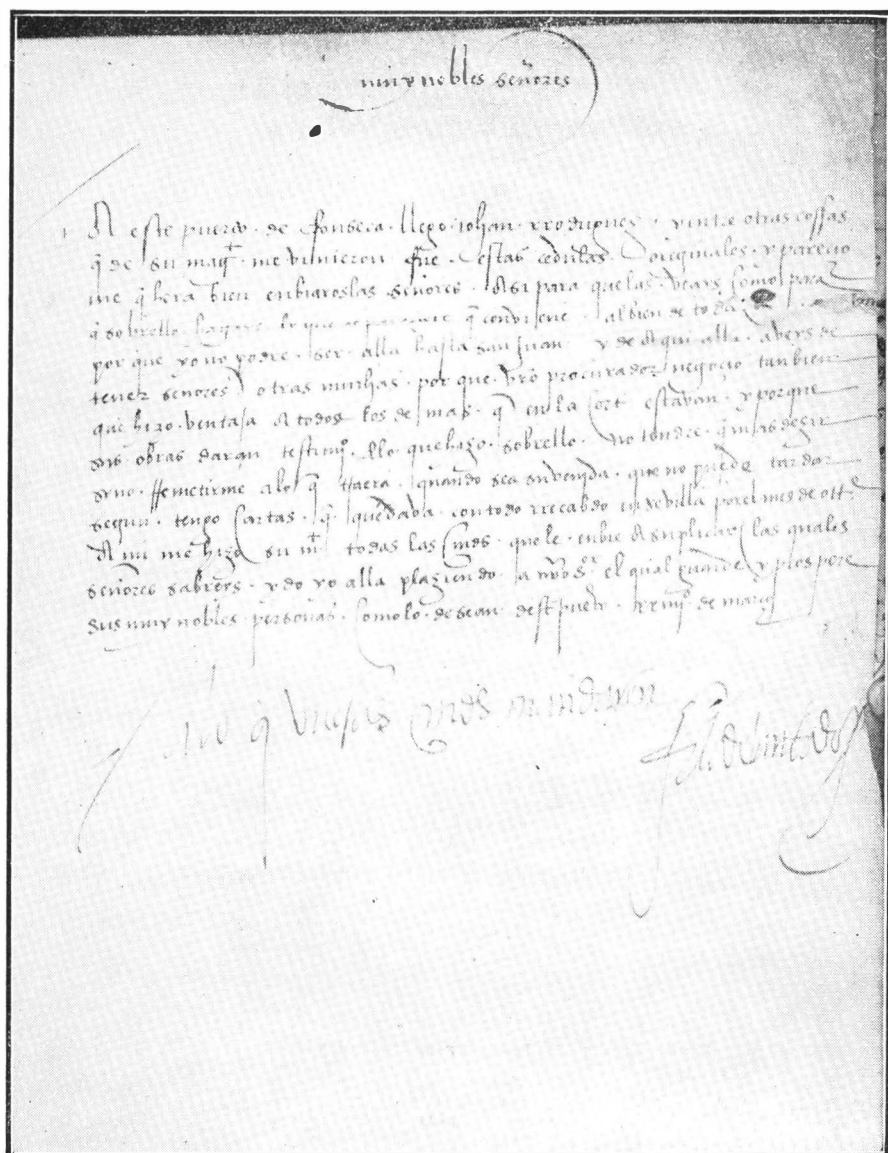 muy nobles señores
A este puerto. de fonseca. llego. johan. rrodriguez. y entre otras cossas
q̃ de su mag^t. me vinieron fue. estas cedulas. originales. y parecio
me q̃ hera bien enbiaroslas señores. asi para que las. veays como para
q̃ sobrello. hagays lo que q̃ conviene. al bien de toda
por que yo no podre. ser. alla hasta san juan y de aqui alla. aveys de
tener señores otras muchas. por que. vr̃o procurador negocio tanbien
que hizo. ventaja a todos los de mas. q̃ en la cort estavan. y porque
sus obras daran testim^o. dello que hago. sobrello. no tendre. q̃ mas desir
syno. rremetirme a lo q̃ traera. quando sea su venida. que no puede tardar
segun. tengo cartas. q̃ quedava. con todo rrecabdo en sevilla por el mes de ott^e
A mi me hizo su m^t todas las mds. que le. enbie a suplicar las quales
señores sabreys. ydo yo alla plaziendo. a nr̃o s^or el qual guarde y prospere
sus muy nobles. personas. como lo. desean dest puerto. xxiiij^o de março
A lo q̃ vuestras mds mandaren